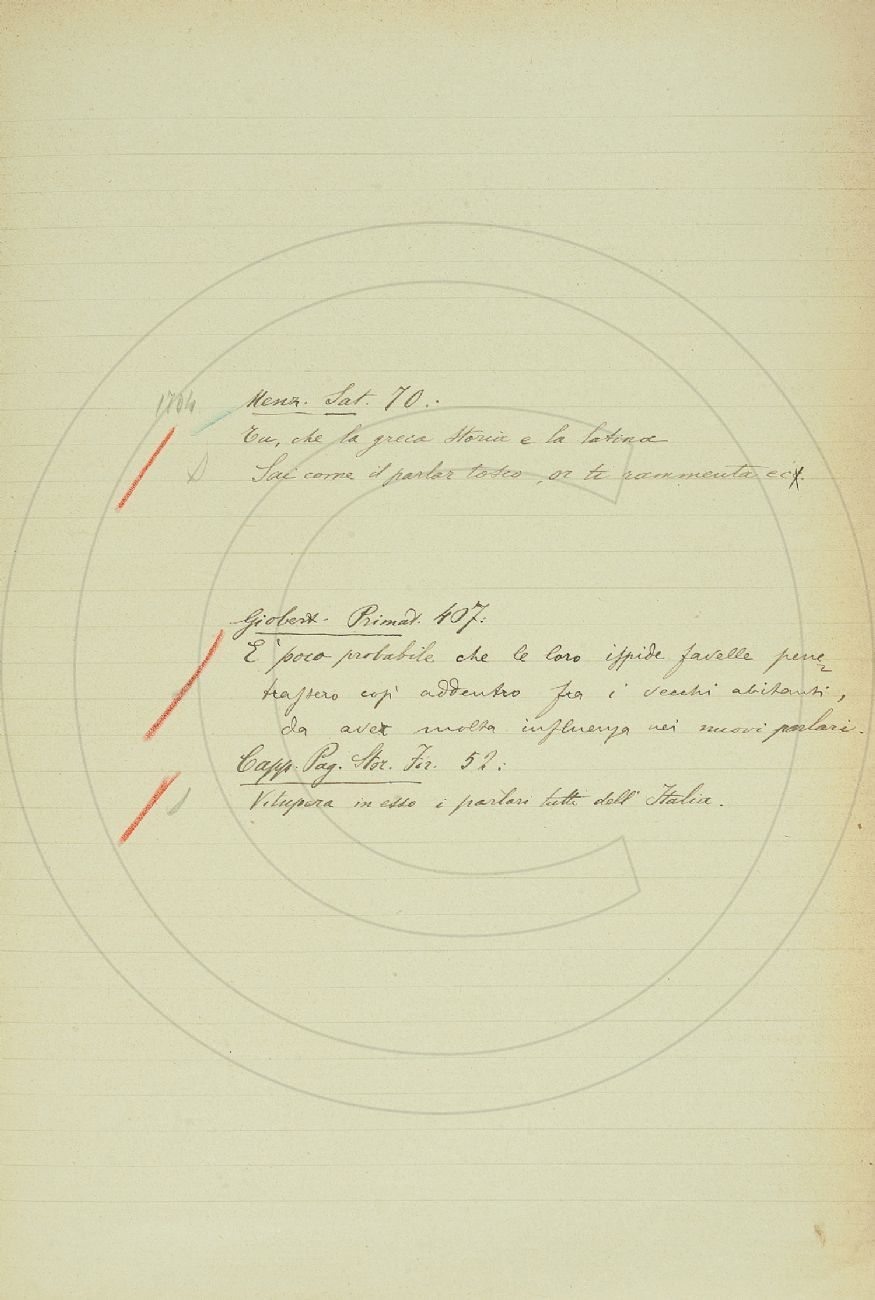 1704
Menz. Sat. 70.:
Tu, che la greca storia e la latina
Sai come il parlar tosco, or ti rammenta ec.
Giobert. Primat. 407:
È poco probabile che le loro ispide favelle pene-
trassero così addentro fra i vecchi abitanti,
da aver molta influenza nei nuovi parlari.
Capp. Pag. Stor. Fir. 52:
Vitupera in esso i parlari tutti dell' Italia.